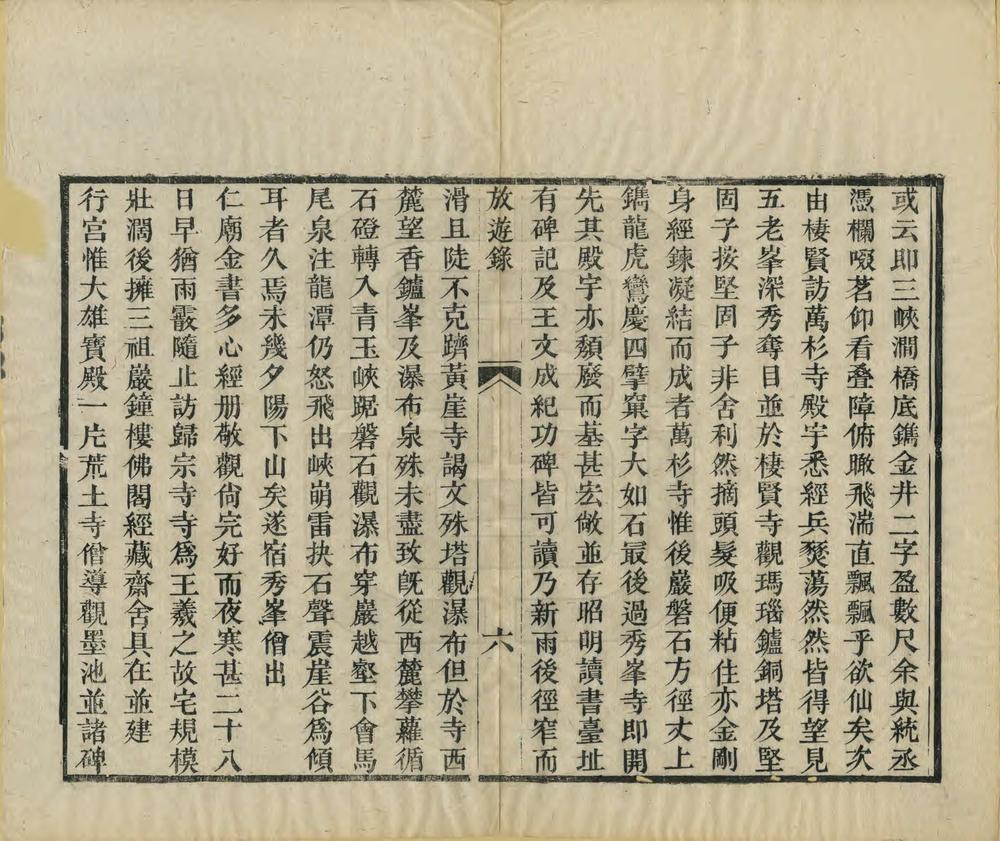 或云即三峽澗橋底鐫金井二字盈數尺余與統丞
憑欄啜茗仰看叠障俯瞰飛湍直飄飄乎欲仙矣次
由棲賢訪萬杉寺殿宇悉經兵燹蕩然然皆得望見
五老峯深秀奪目並於棲賢寺觀瑪瑙鑪銅塔及堅
固子按堅固子非舍利然摘頭髮吸便粘住亦金剛
身經鍊凝結而成者萬杉寺惟後嚴磐石方徑丈上
鐫龍虎鸞慶四擘窠字大如石最後過秀峯寺即開
先其殿宇亦頹廢而基甚宏敞並存昭明讀書臺址
有碑記及王文成紀功碑皆可讀乃新雨後徑窄而
放遊錄
六
滑且陡不克躋黃崖寺謁文殊塔觀瀑布但於寺西
麓望香鑪峯及瀑布泉殊未盡致旣從西麓攀蘿循
石磴轉入青玉峽踞磐石觀瀑布穿巖越壑下會馬
尾泉注龍潭仍怒飛出峽崩雷抉石聲震崖谷爲傾
耳者久焉未幾夕陽下山矣遂宿秀峯僧出
仁廟金書多心經册敬觀尙完好而夜寒甚二十八
日早猶雨霰隨止訪歸宗寺寺爲王羲之故宅規模
壯濶後擁三祖巖鐘樓佛閣經藏齋舍具在並建
行宮惟大雄寶殿一片荒土寺僧導觀墨池並諸碑